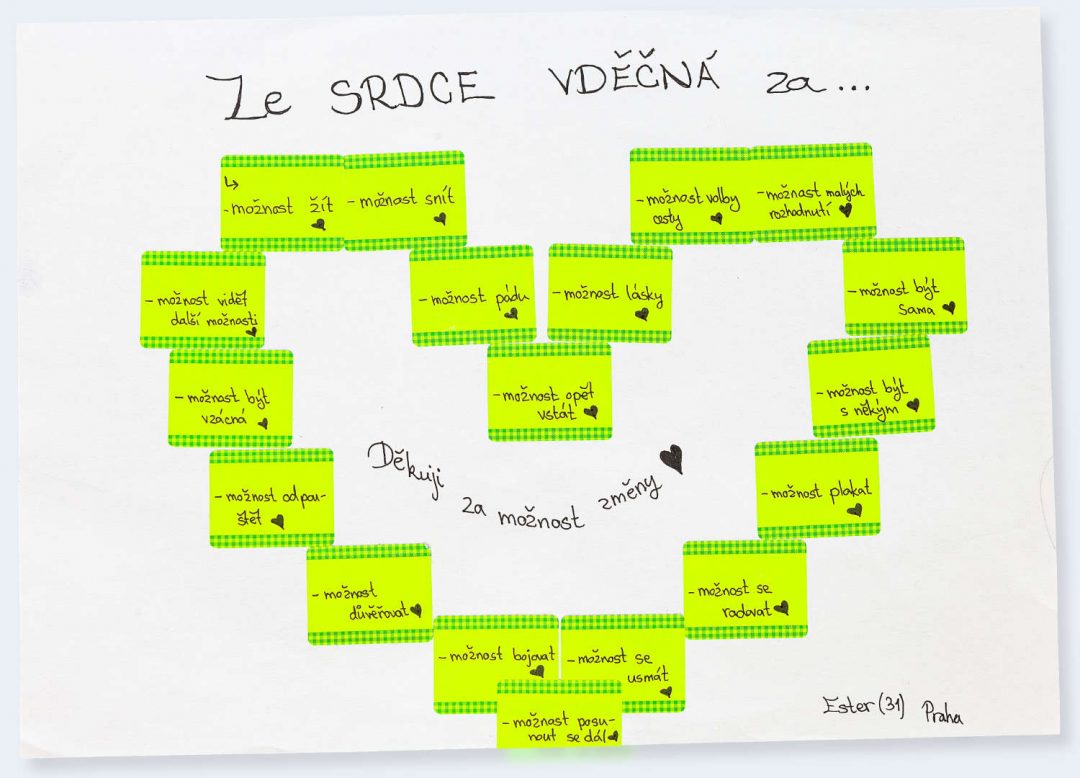 Ze SRDCE VDĚČNÁ za...
↳
- možnost žít
- možnost snít
- možnost volby
cesty
- možnost malých
rozhodnutí
- možnost vidět
další možnosti
- možnost pádu
- možnost lásky
- možnost být
sama
- možnost být
vzácná
- možnost opět
vstát
- možnost být
s někým
- možnost odpou-
štět
Děkuji za možnost změny
- možnost plakat
- možnost
důvěřovat
- možnost se
radovat
- možnost bojovat
- možnost se
usmát
- možnost posu-
nout se dál
Ester (31) Praha